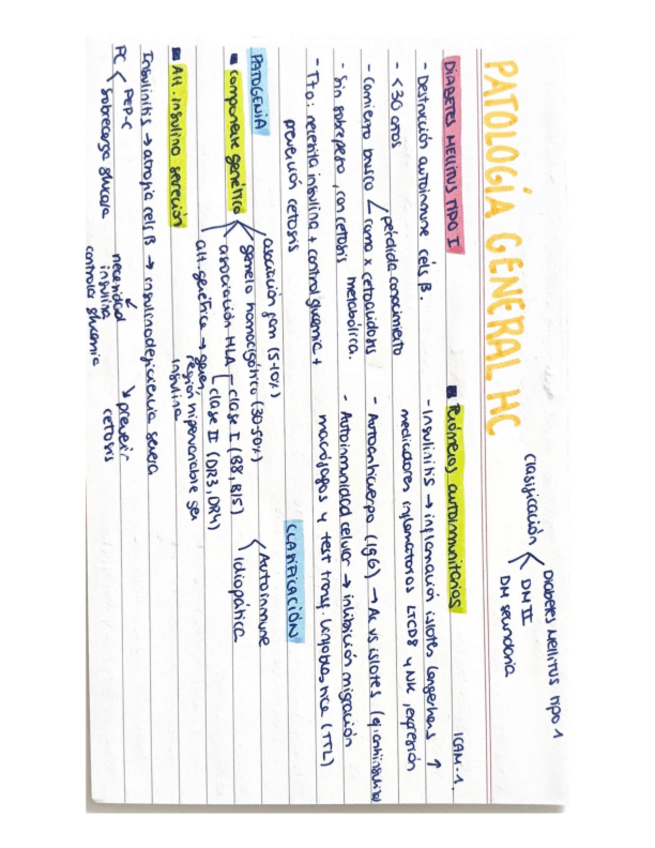 PATOLOGÍA GENERAL HC
Clasificación
Diabetes Mellitus tipo 1
DM II
DM secundaria
DIABETES MELLITUS TIPO I
- Destrucción autoinmune cels β.
- < 30 años
- Comienzo brusco
pérdida conocimiento
coma x cetoacidosis
metabólica.
- Sin sobrepeso, con cetosis
- Tto: necesita insulina + control glucemia +
prevención cetosis
PATOGENIA
componente genético
asociación fam (5-10%)
gemelo homocigótico (30-50%)
asociación HLA
clase I (B8, B15)
clase II (DR3, DR4)
alt. genética → gener,
región hipervariable gen
insulina
Alt. insulino secreción
Insulinitis → atrofia cels β → insulinodeficiencia severa
PC
PEP-C
Sobrecarga glucosa
necesidad
insulina
controlar glucemia
prevenir
cetosis
Fenómenos autoinmunitarios
- Insulinitis → inflamación islotes Langerhans ↑
mediadores inflamatorios LTCD8 y NK, expresión
ICAM-1.
- Autoanticuerpo (IgG) → Ac vs islotes (ej. antiinsulina)
- Autoinmunidad celular → inhibición migración
macrófagos y test transf. (TTL)
CLASIFICACIÓN
Autoinmune
Idiopática